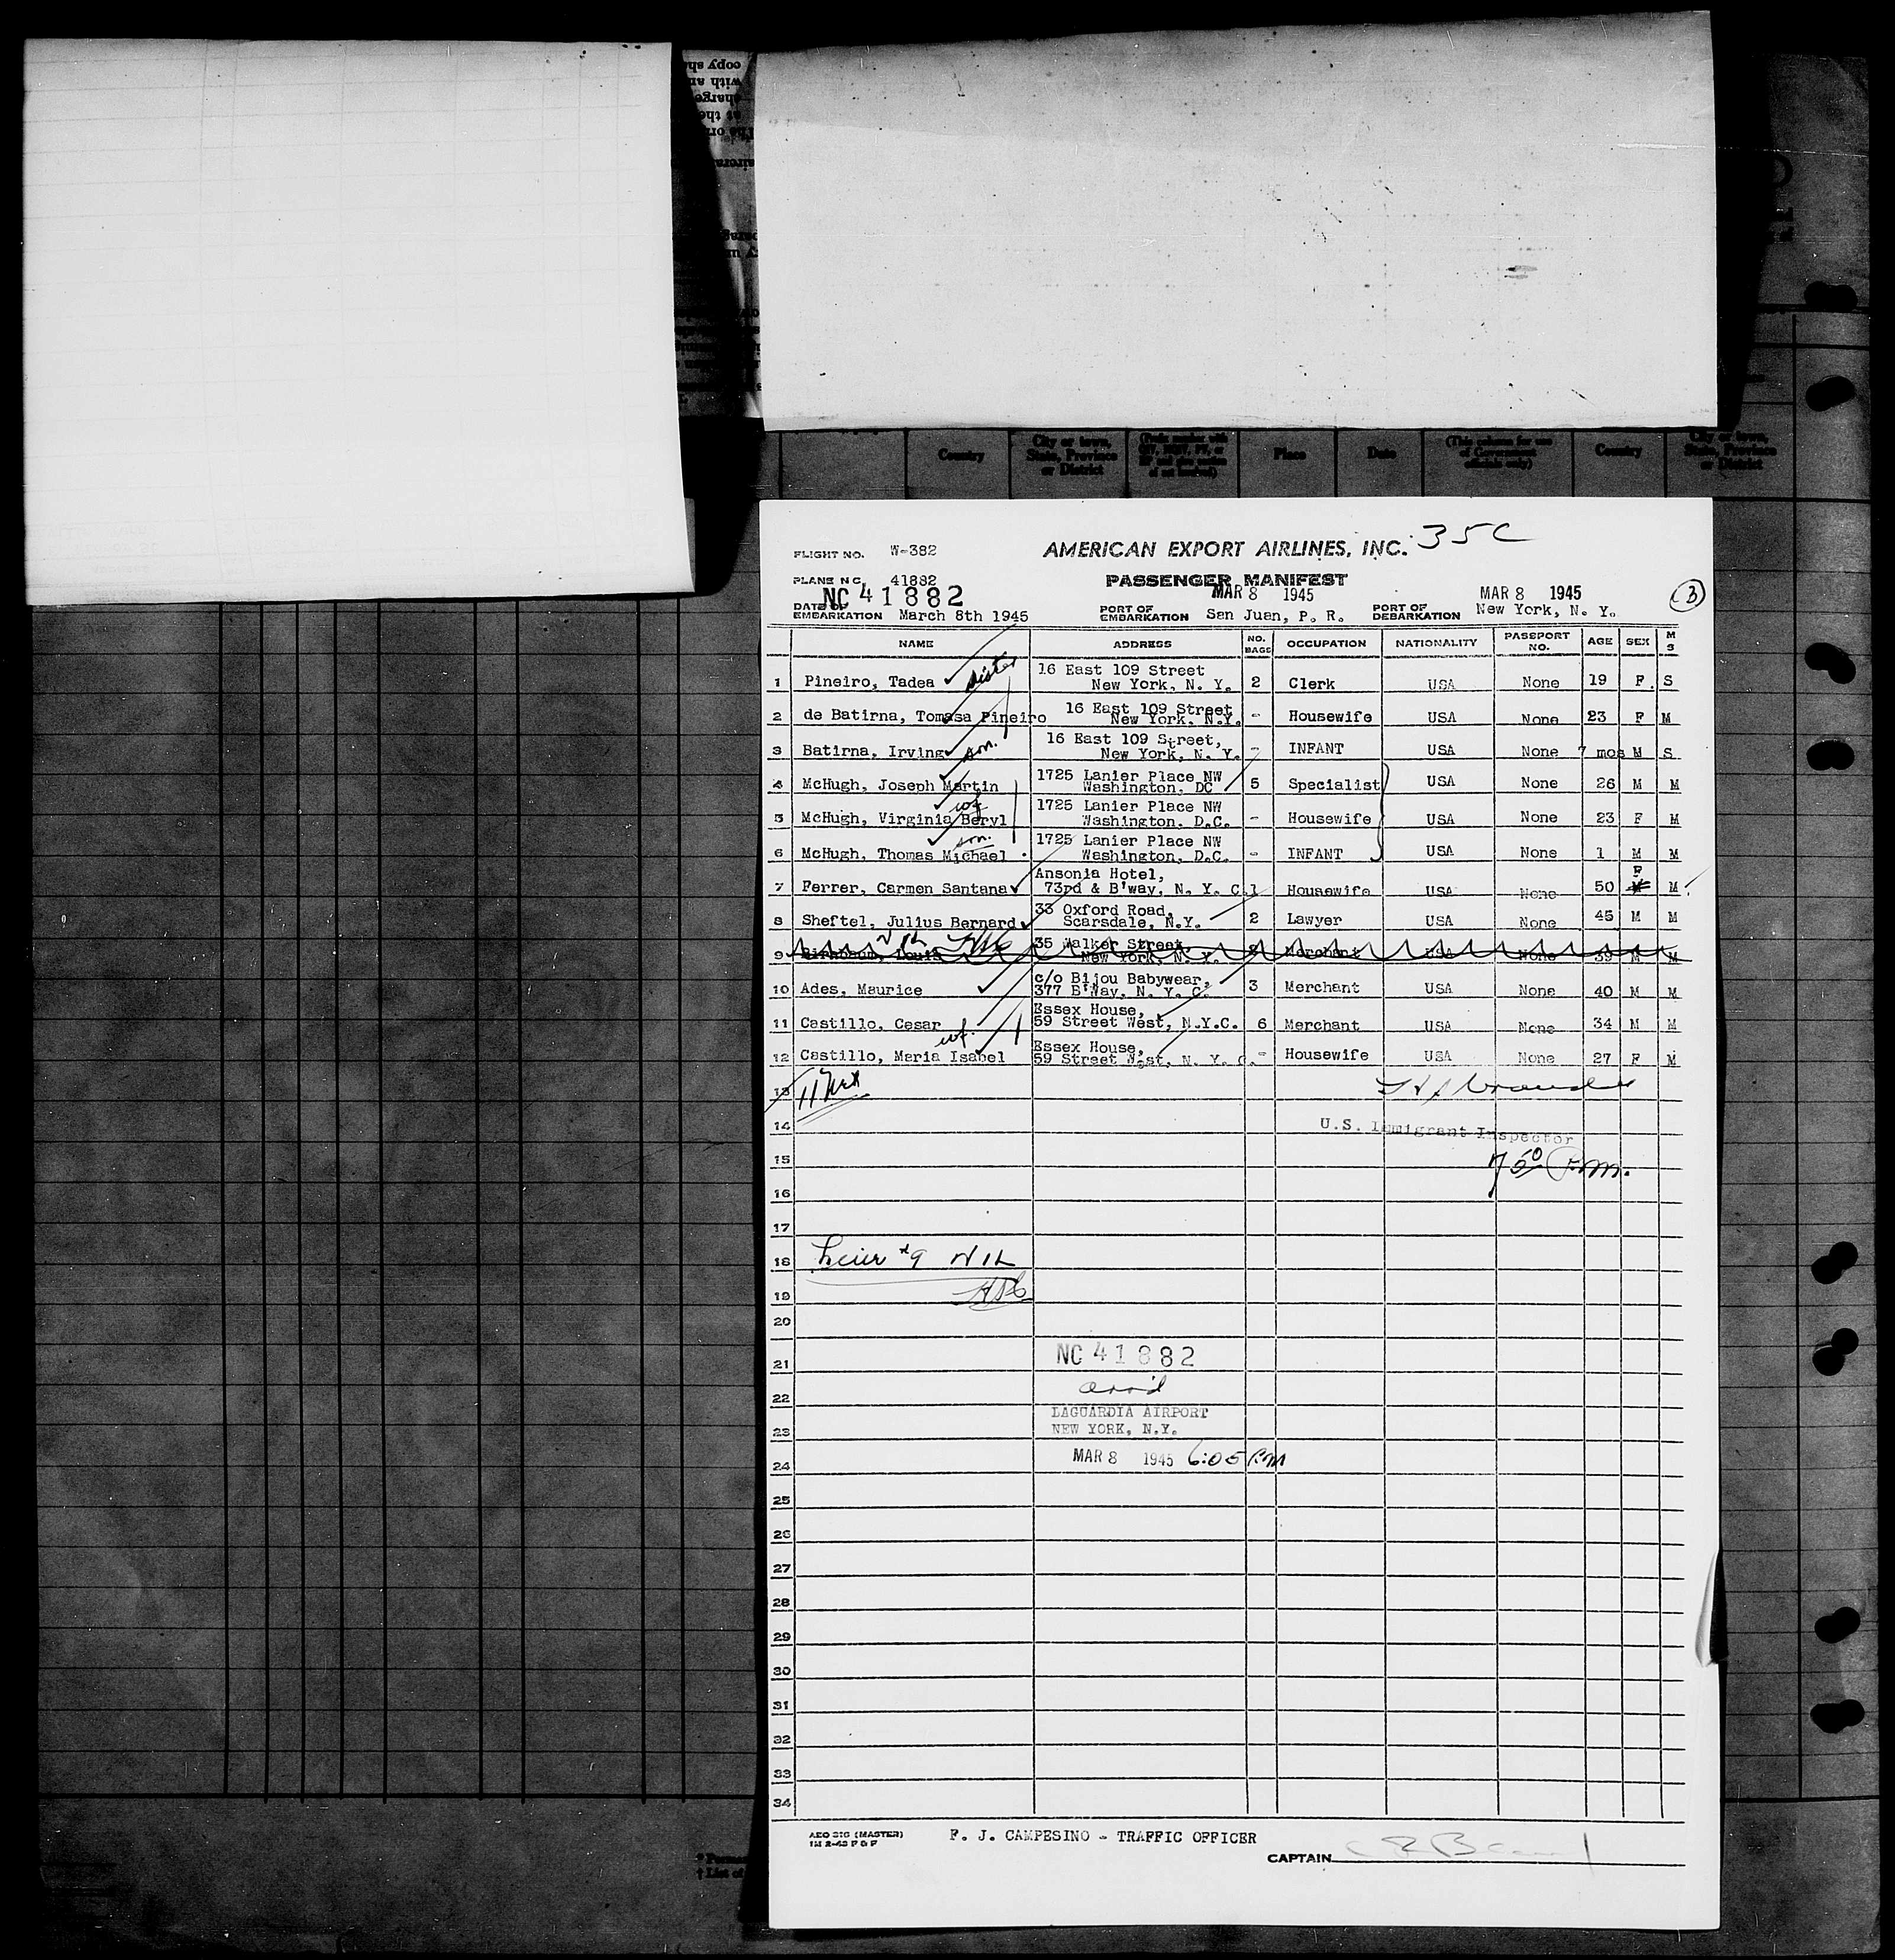 copy sh
with an
charge
at the
The or
aircra
Country
City or town, State, Province or District
Place
Date
(This column for use of Government officials only)
Country
City or town, State, Province or District
AMERICAN EXPORT AIRLINES, INC. 35C
FLIGHT NO. W-382
PLANE NO. 41882
PASSENGER MANIFEST
NC 41882
MAR 8 1945
MAR 8 1945
3
DATE OF EMBARKATION March 8th 1945 PORT OF EMBARKATION San Juan, P. R. PORT OF DEBARKATION New York, N. Y.
NAME ADDRESS NO. BAGS OCCUPATION NATIONALITY PASSPORT NO. AGE SEX M S
sister
1 Pineiro, Tadea 16 East 109 Street New York, N. Y. 2 Clerk USA None 19 F. S
2 de Batirna, Tomasa Pineiro 16 East 109 Street New York, N.Y. - Housewife USA None 23 F M
3 Batirna, Irving son. 16 East 109 Street, New York, N. Y. - INFANT USA None 7 mos M S
4 McHugh, Joseph Martin 1725 Lanier Place NW Washington, DC 5 Specialist USA None 26 M M
wf
5 McHugh, Virginia Beryl 1725 Lanier Place NW Washington, D.C. - Housewife USA None 23 F M
son.
6 McHugh, Thomas Michael 1725 Lanier Place NW Washington, D.C. - INFANT USA None 1 M M
7 Ferrer, Carmen Santana Ansonia Hotel, 73rd & B'way, N. Y. C. 1 Housewife USA None 50 F M
8 Sheftel, Julius Bernard 33 Oxford Road, Scarsdale, N.Y. 2 Lawyer USA None 45 M M
9 Birnbaum, Louis 35 Walker Street, New York, N. Y. Merchant USA None 39 M M
10 Ades, Maurice c/o Bijou Babywear, 377 B'Way, N. Y. C. 3 Merchant USA None 40 M M
11 Castillo, Cesar Essex House, 59 Street West, N.Y.C. 6 Merchant USA None 34 M M
wf.
12 Castillo, Maria Isabel Essex House, 59 Street West, N. Y. C. - Housewife USA None 27 F M
13
14
U.S. Immigrant Inspector
15
7 50 P.m.
16
17
18 #9
19
20
21 NC 41882
22 arr'd
LAGUARDIA AIRPORT
23 NEW YORK, N.Y.
24 MAR 8 1945 6:05 P.M
25
26
27
28
29
30
31
32
33
34
AEO 31C (MASTER)
1M 2-43 P & P
F. J. CAMPESINO - TRAFFIC OFFICER
CAPTAIN
† List of